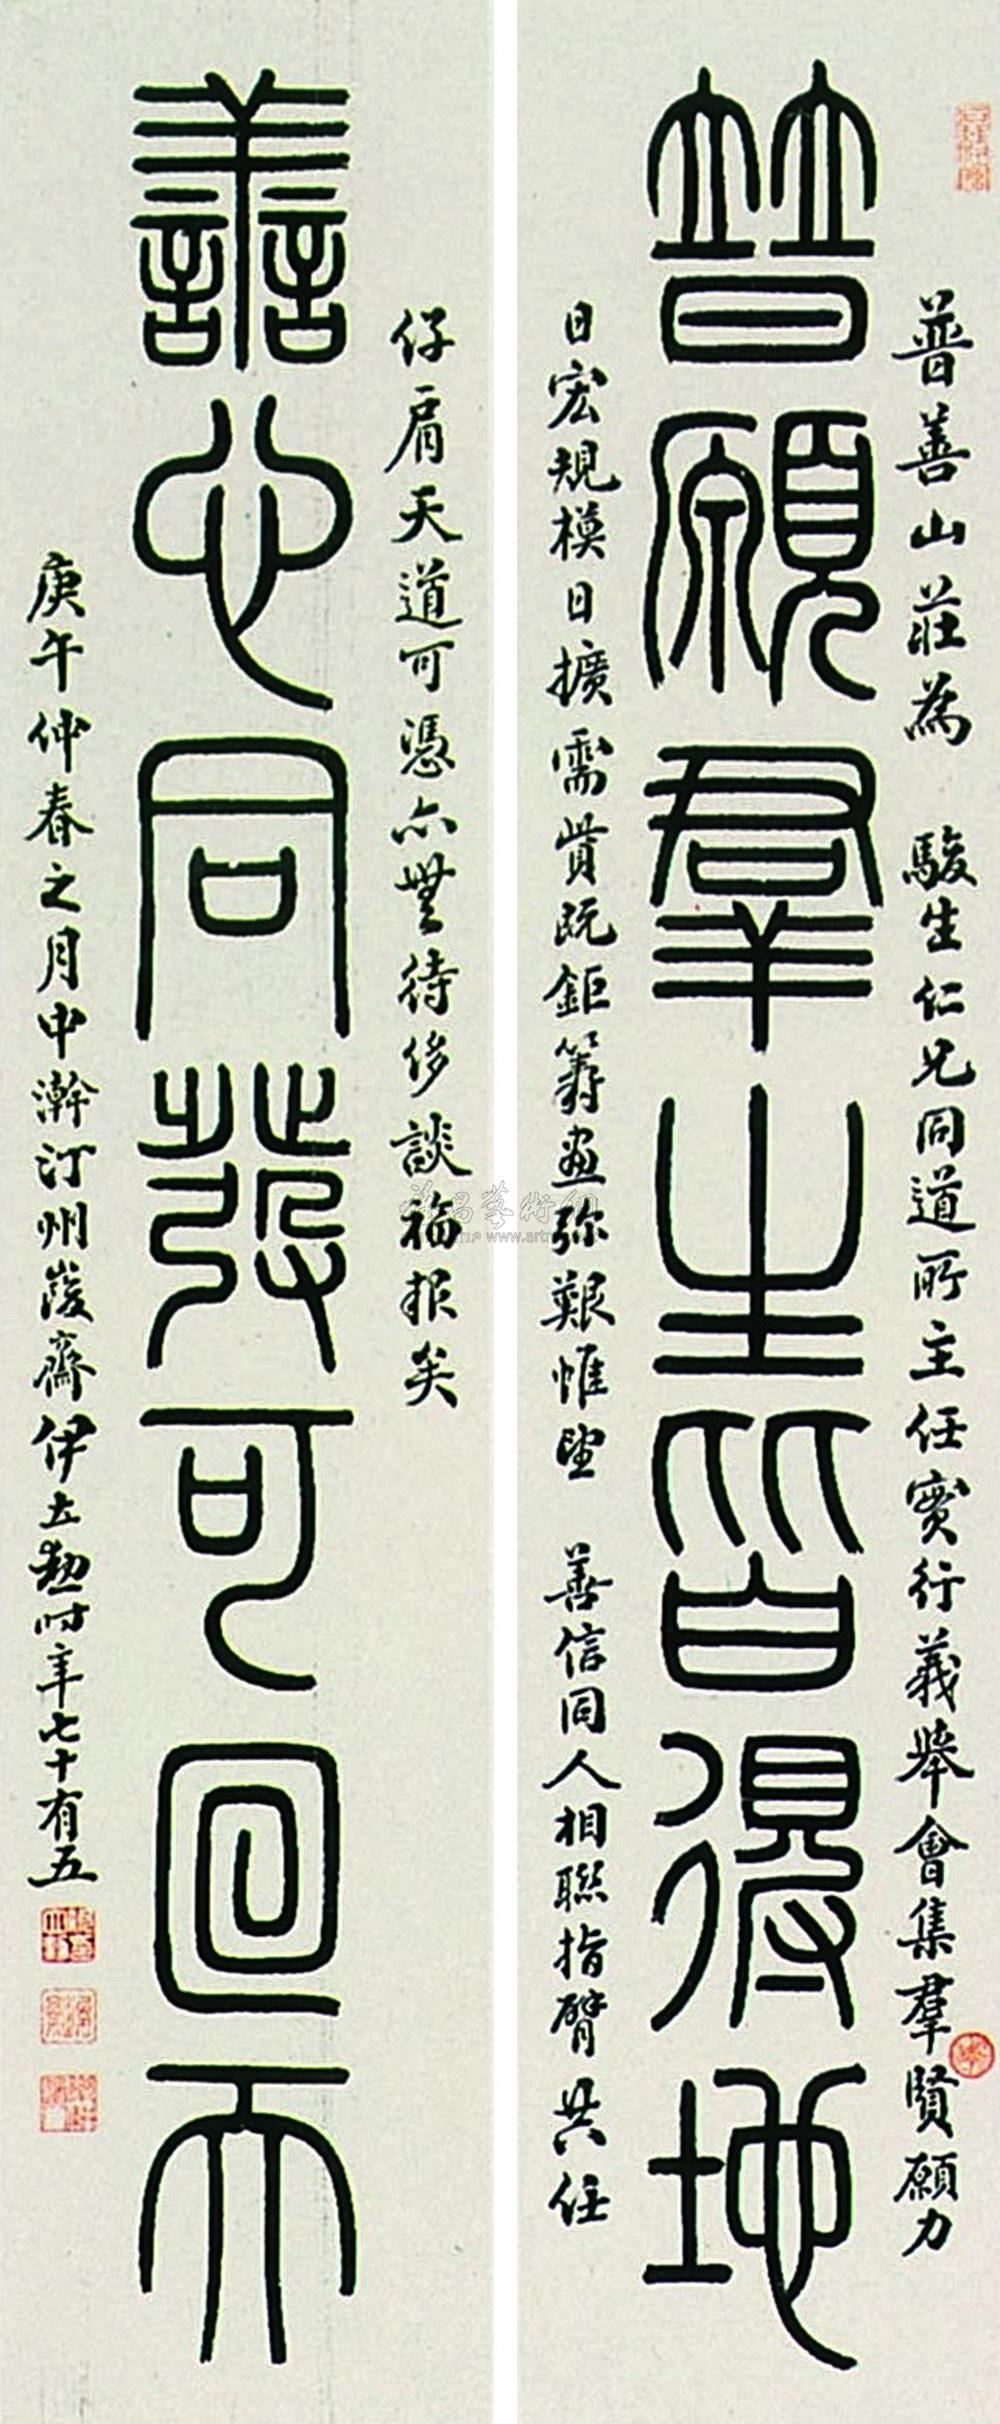 普願羣生皆得地
善心同發可回天
普善山莊為 駿生仁兄同道所主任實行義舉會集羣賢願力
日宏規模日擴需貲既鉅籌畫弥艱惟望 善信同人相聯指臂共任
仔肩天道可憑亦無待侈談福报矣
庚午仲春之月中澣汀州峻齋伊立勳時年七十有五